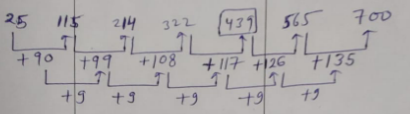 25 115 214 322 439 565 700
+90 +99 +108 +117 +126 +135
+9 +9 +9 +9 +9